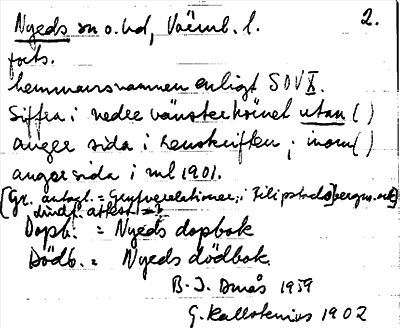 Nyeds sn o. hd, Värml. l. 2.
forts.
hemmansnamnen enligt SOV X.
Siffra i nedre vänsterhörnet utan ( )
anger sida i renskriften; inom ( )
anger sida i ml 1901.
[Gr. antagl. = Grufverelationer, i Filipstads bergm. ark]
dödf. attest =
Dopb. = Nyeds dopbok
Dödb. = Nyeds dödbok
B. I. 1959
G. Kallstenius 1902